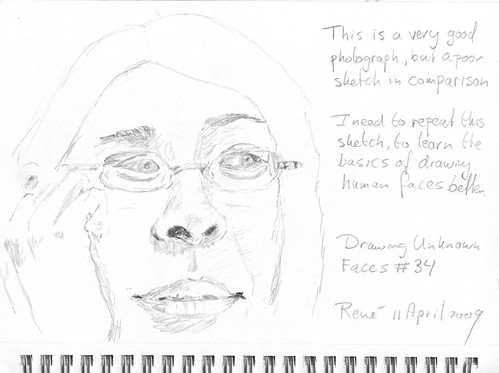 This is a very good
photograph, but a poor
sketch in comparison
I need to repeat this
sketch, to learn the
basics of drawing
human faces better.
Drawing Unknown
Faces #34
René 11 April 2009